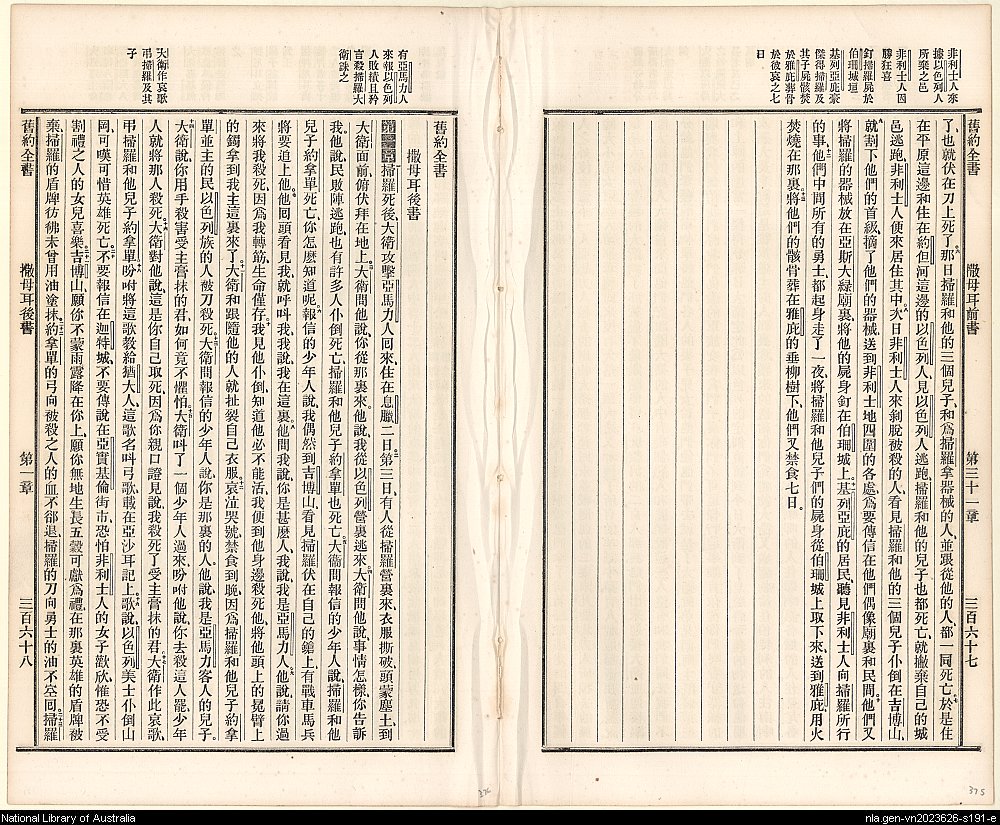 非利士人來
據以色列人
所棄之邑
非利士人因
勝狂喜
釘掃羅屍於
伯珊城垣
基列亞庇豪
傑得掃羅及
其子屍骸焚
於雅庇葬骨
於彼哀之七
日
舊約全書 撒母耳前書 第三十一章 三百六十七
了、也就伏在刀上死了、那日掃羅和他的三個兒子、和爲掃羅拿器械的人、並跟從他的人、都一同死亡、於是住
在平原這邊和住在約但河這邊的以色列人、見以色列人逃跑、掃羅和他的兒子也都死亡、就撇棄自己的城
邑逃跑、非利士人便來居住其中、次日非利士人來剝脫被殺的人、看見掃羅和他的三個兒子仆倒在吉博山、
就割下他們的首級、摘了他們的器械、送到非利士地四圍的各處、爲要傳信在他們偶像廟裏和民間、他們又
將掃羅的器械放在亞斯大綠廟裏、將他的屍身釘在伯珊城上、基列亞庇的居民、聽見非利士人向掃羅所行
的事、他們中間所有的勇士都起身、走了一夜、將掃羅和他兒子們的屍身、從伯珊城上取下來、送到雅庇、用火
焚燒在那裏、將他們的骸骨葬在雅庇的垂柳樹下、他們又禁食七日。
有亞馬力人
來報以色列
人敗績且矜
言殺掃羅大
衛誅之
大衛作哀歌
弔掃羅及其
子
舊約全書
撒母耳後書
第一章 掃羅死後、大衛攻擊亞馬力人回來、住在息臘二日、第三日、有人從掃羅營裏來、衣服撕破、頭蒙塵土、到
大衛面前俯伏拜在地上、大衛問他說、你從那裏來、他說、我從以色列營裏逃來、大衛問他說、事情怎樣、你告訴
我、他說、民敗陣逃跑、也有許多人仆倒死亡、掃羅和他兒子約拿單也死亡、大衛問報信的少年人說、掃羅和他
兒子約拿單死亡、你怎麼知道呢、報信的少年人說、我偶然到吉博山、看見掃羅伏在自己的鎗上、有戰車馬兵
將要追上他、他回頭看見我、就呼叫我、我說、我在這裏、他問我說、你是甚麼人、我說、我是亞馬力人、他說、請你過
來將我殺死、因爲我轉筋、生命僅存、我見他仆倒、知道他必不能活、我便到他身邊殺死他、將他頭上的冕臂上
的鐲拿到我主這裏來了、大衛和跟隨他的人、就扯裂自己衣服、哀泣哭號、禁食到晚、因爲掃羅和他兒子約拿
單並主的民以色列族的人被刀殺死、大衛問報信的少年人說、你是那裏的人、他說、我是亞馬力客人的兒子、
大衛說、你用手殺害受主膏抹的君、如何竟不懼怕、大衛叫了一個少年人過來、吩咐他說、你去殺這人罷、少年
人就將那人殺死、大衛對他說、這是你自己取死、因爲你親口證見說、我殺死了受主膏抹的君、大衛作此哀歌
弔掃羅和他兒子約拿單、吩咐將這歌教給猶大人、這歌名叫弓歌、載在亞沙耳記上、歌說、以色列美士仆倒山
岡、可嘆可惜英雄死亡、不要報信在迦特城、不要傳說在亞實基倫街市、恐怕非利士人的女子歡欣、惟恐不受
割禮之人的女兒喜樂、吉博山願你不蒙雨露降在你上、願你無地生長五穀可獻爲禮、在那裏英雄的盾牌被
棄、掃羅的盾牌彷彿未曾用油塗抹、約拿單的弓向被殺之人的血不卻退、掃羅的刀向勇士的油不空回、掃羅
舊約全書 撒母耳後書 第一章 三百六十八
376
375
National Library of Australia
nla.gen-vn2023626-s191-e